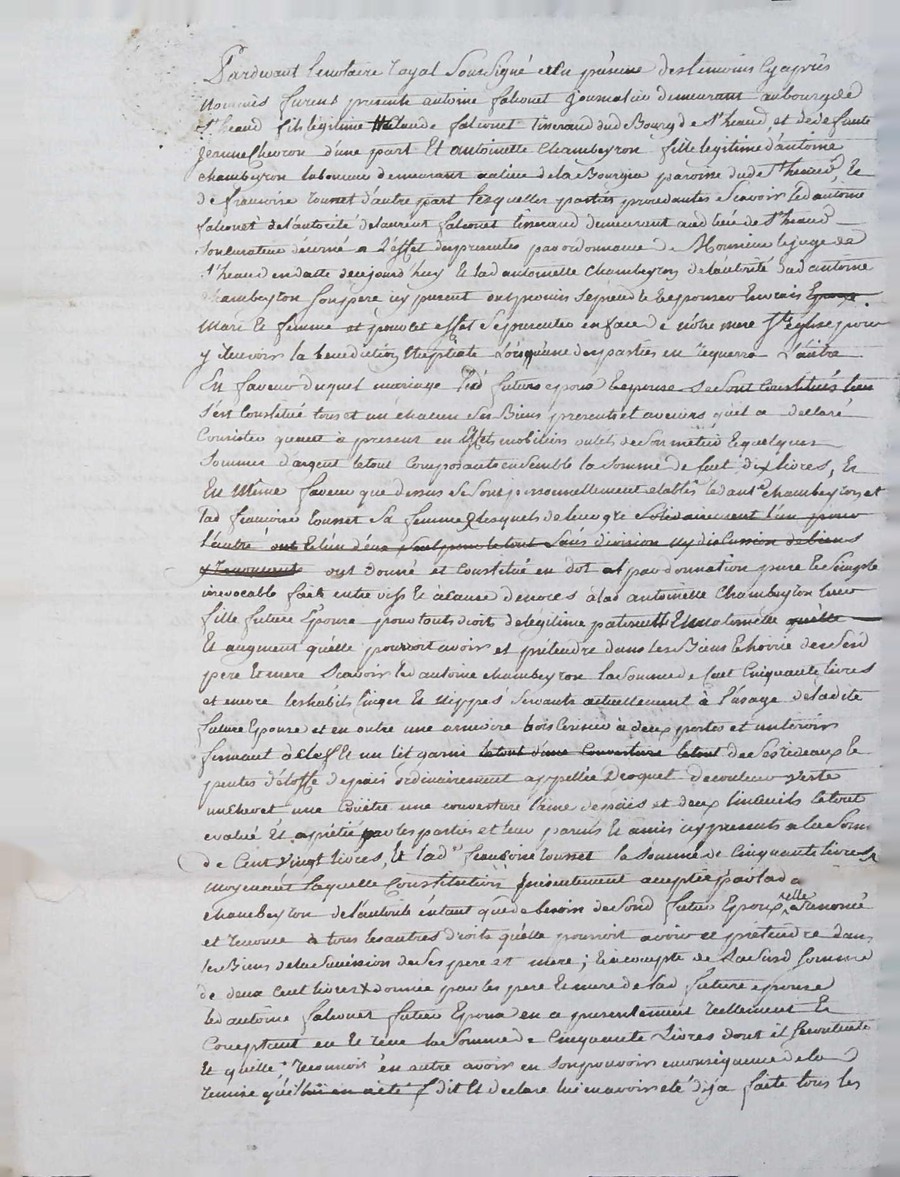 Pardevant le notaire royal soussigné et en présence des temoins cy après
nommés furent présents antoine falconet journalier demeurant au bourg de
St heand fils légitime a claude falconet tisserand dud Bourg de St heand, et de defunte
jeanne d'une part Et antoinette Chambeyron fille legitime d'antoine
chambeyron laboureur demeurant au lieu de la paroisse dud St heand, Et
de francoise tousset d'autre part lesquelles parties procedantes scavoir led antoine
falconet de l'autorité de laurent falconet tisserand demeurant aud lieu de St heand
son curateur décerné a l'effet des presentes par ordonnance de Monsieur le juge de
St heand en datte de ce jourd'huy Et lad antoinette Chambeyron de l'autorité dud antoine
chambeyron son pere icy present ont promis se prendre et epouser En vrais Epoux
Mari Et femme et pour cet effet se presenter en face de nôtre mere Ste église pour
y recevoir la benediction Nuptiale Lorsque l'une des parties en requerra L'autre
En faveur duquel mariage led futurs epoux Et epouse se sont constitués leu
s'est Constitué tous et un chacun ses Biens presents et avenirs qu'il a declaré
Consister quant à present en effets mobiliers outils de son metier Et quelques
sommes d'argent le tout Composant ensemble la somme de cent dix livres, Et
En Même faveur que dessus se sont personnellement etablis led ant.e chambeyron et
lad francoise tousset sa femme lesquels de leur gre solidairement l'un pour
l'autre ont et l'un d'eux seul pour le tout sans division ny discussion de biens
ont donné et constitué en dot et par donnation pure Et simple
irrévocable faite entre vifs Et à cause de noces à lad antoinette Chambeyron leur
fille future Epouse pour touts droits de légitime paternelle Et maternelle quelle
Et augment qu'elle pourroit avoir et prétendre dans les Biens Et hoirie de ses d
pere Et mere scavoir led antoine chambeyron la somme de cent cinquante livres
et encore les habits linges Et nippes servants actuellement à l'usage de ladite
future Epouse et en outre une armoire bois cerisier a deux portes et un tiroir
fermant à clef Et un lit garni le tout d'une couverture le tout de ses rideaux Et
pentes d'étoffe de païs ordinairement appellée Droguet de couleur verte
un chevet une Coüetre une couverture laine de païs et deux linceuils le tout
evalué Et apretié par les parties et leur parents Et amis icy presents a la som
de Cent vingt livres, Et lad.e francoise tousset la somme de cinquante livres
moyenant laquelle Constitution présentement acceptée par lad a
chambeyron de l'autorité entant que de besoin de sond futur Epoux elle a renoncé
et renonce à tous les autres droits qu'elle pourroit avoir et prétendre dans
les Biens de la succession de ses pere et mere; Et a compte de lasusd somme
de deux cent livres donnée par les pere Et mere de lad future epouse
led antoine falconet futur Epoux en a presentement reellement Et
Comptant eu Et recu la somme de Cinquante Livres dont il se contente
Et quitte reconnoit en outre avoir en son pouvoir en conséquence de la
remise qu'il lui en a été dit Et declare lui en avoir été déja faite tous les